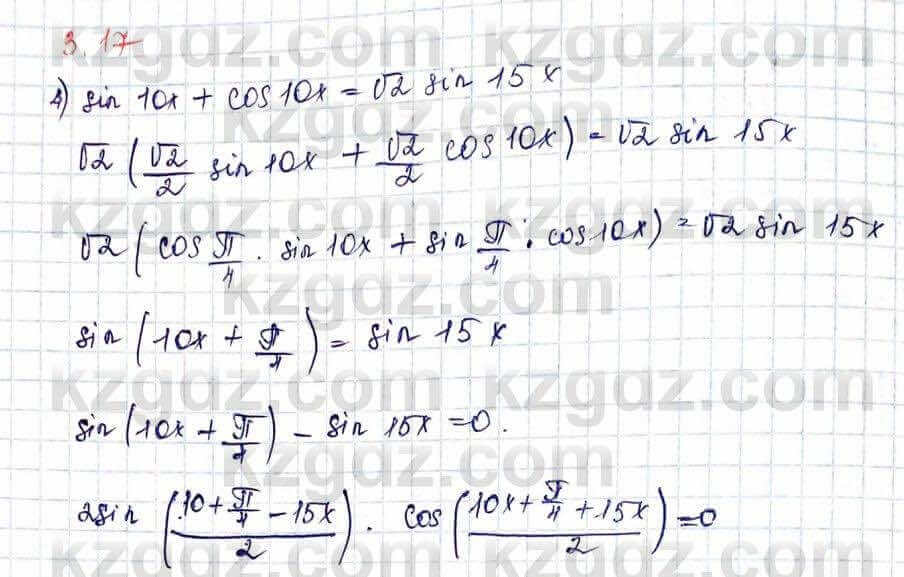 3.17
4) sin 10x + cos 10x = √2 sin 15x
√2 (√2/2 sin 10x + √2/2 cos 10x) = √2 sin 15x
√2 (cos π/4 · sin 10x + sin π/4 · cos 10x) = √2 sin 15x
sin (10x + π/4) = sin 15x
sin (10x + π/4) - sin 15x = 0.
2sin ((10 + π/4 - 15x)/2) · cos ((10x + π/4 + 15x)/2) = 0
kzgdz.com kzgdz.com
kzgdz.com
kzgdz.com kzgdz.com
kzgdz.com
kzgdz.com kzgdz.com
kzgdz.com
kzgdz.com kzgdz.com